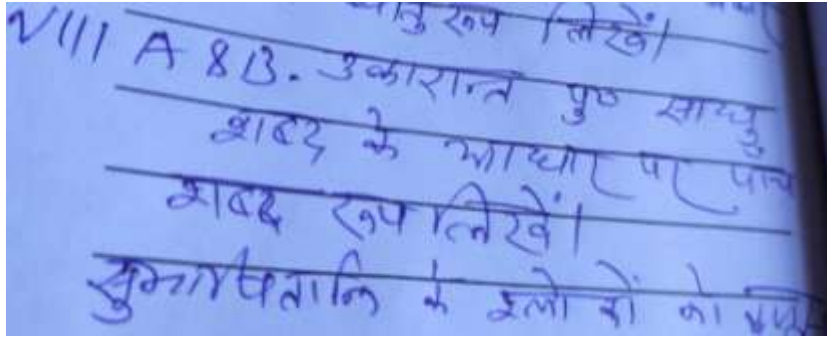 धातु रूप लिखें।
VIII A & B. उकारान्त पु० साधु
शब्द के आधार पर पांच
शब्द रूप लिखें।
सुभाषितानि के श्लोकों को